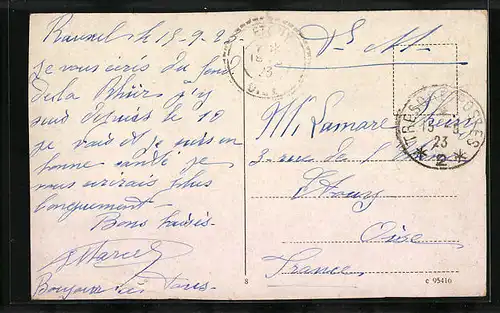 Rauxel le 15-9-23
je vous écris du fond
de la Rhür j'y
suis depuis le 10
je vais et suis en
bonne santé je
vous écrirais plus
longuement
Bons baisés
Marcel
Bonjour à tous
F. M.
M. Lamare
3 rue de l'
Oise
France
TRESOR ET POSTES
15 9
23
* 2 *
OISE
23
8
c 95416